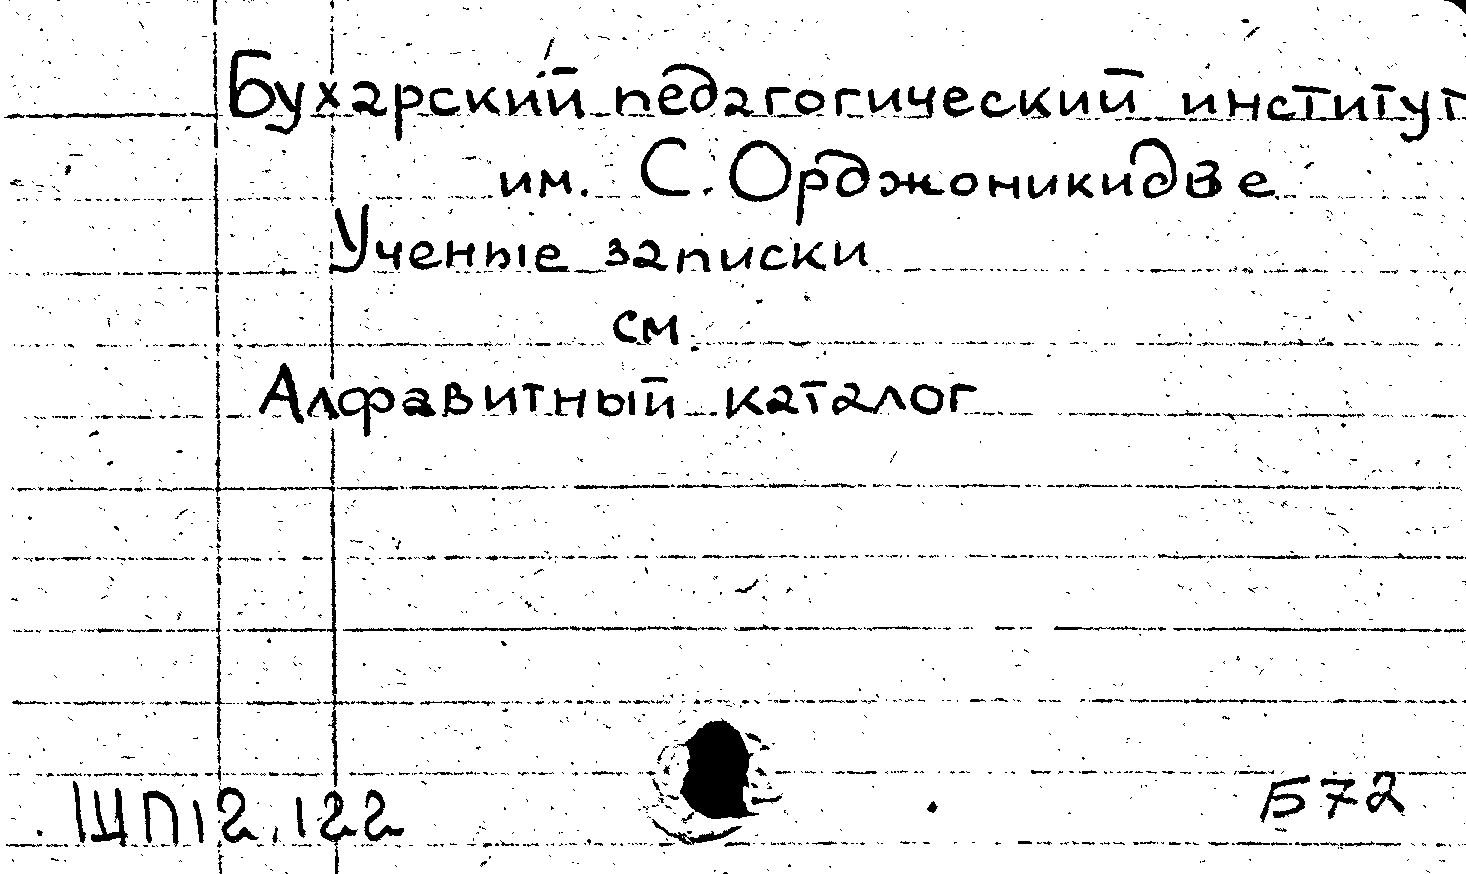 Бухарский педагогический институт
им. С. Орджоникидзе
Ученые записки
см.
Алфавитный каталог
ШП12.122
Б72